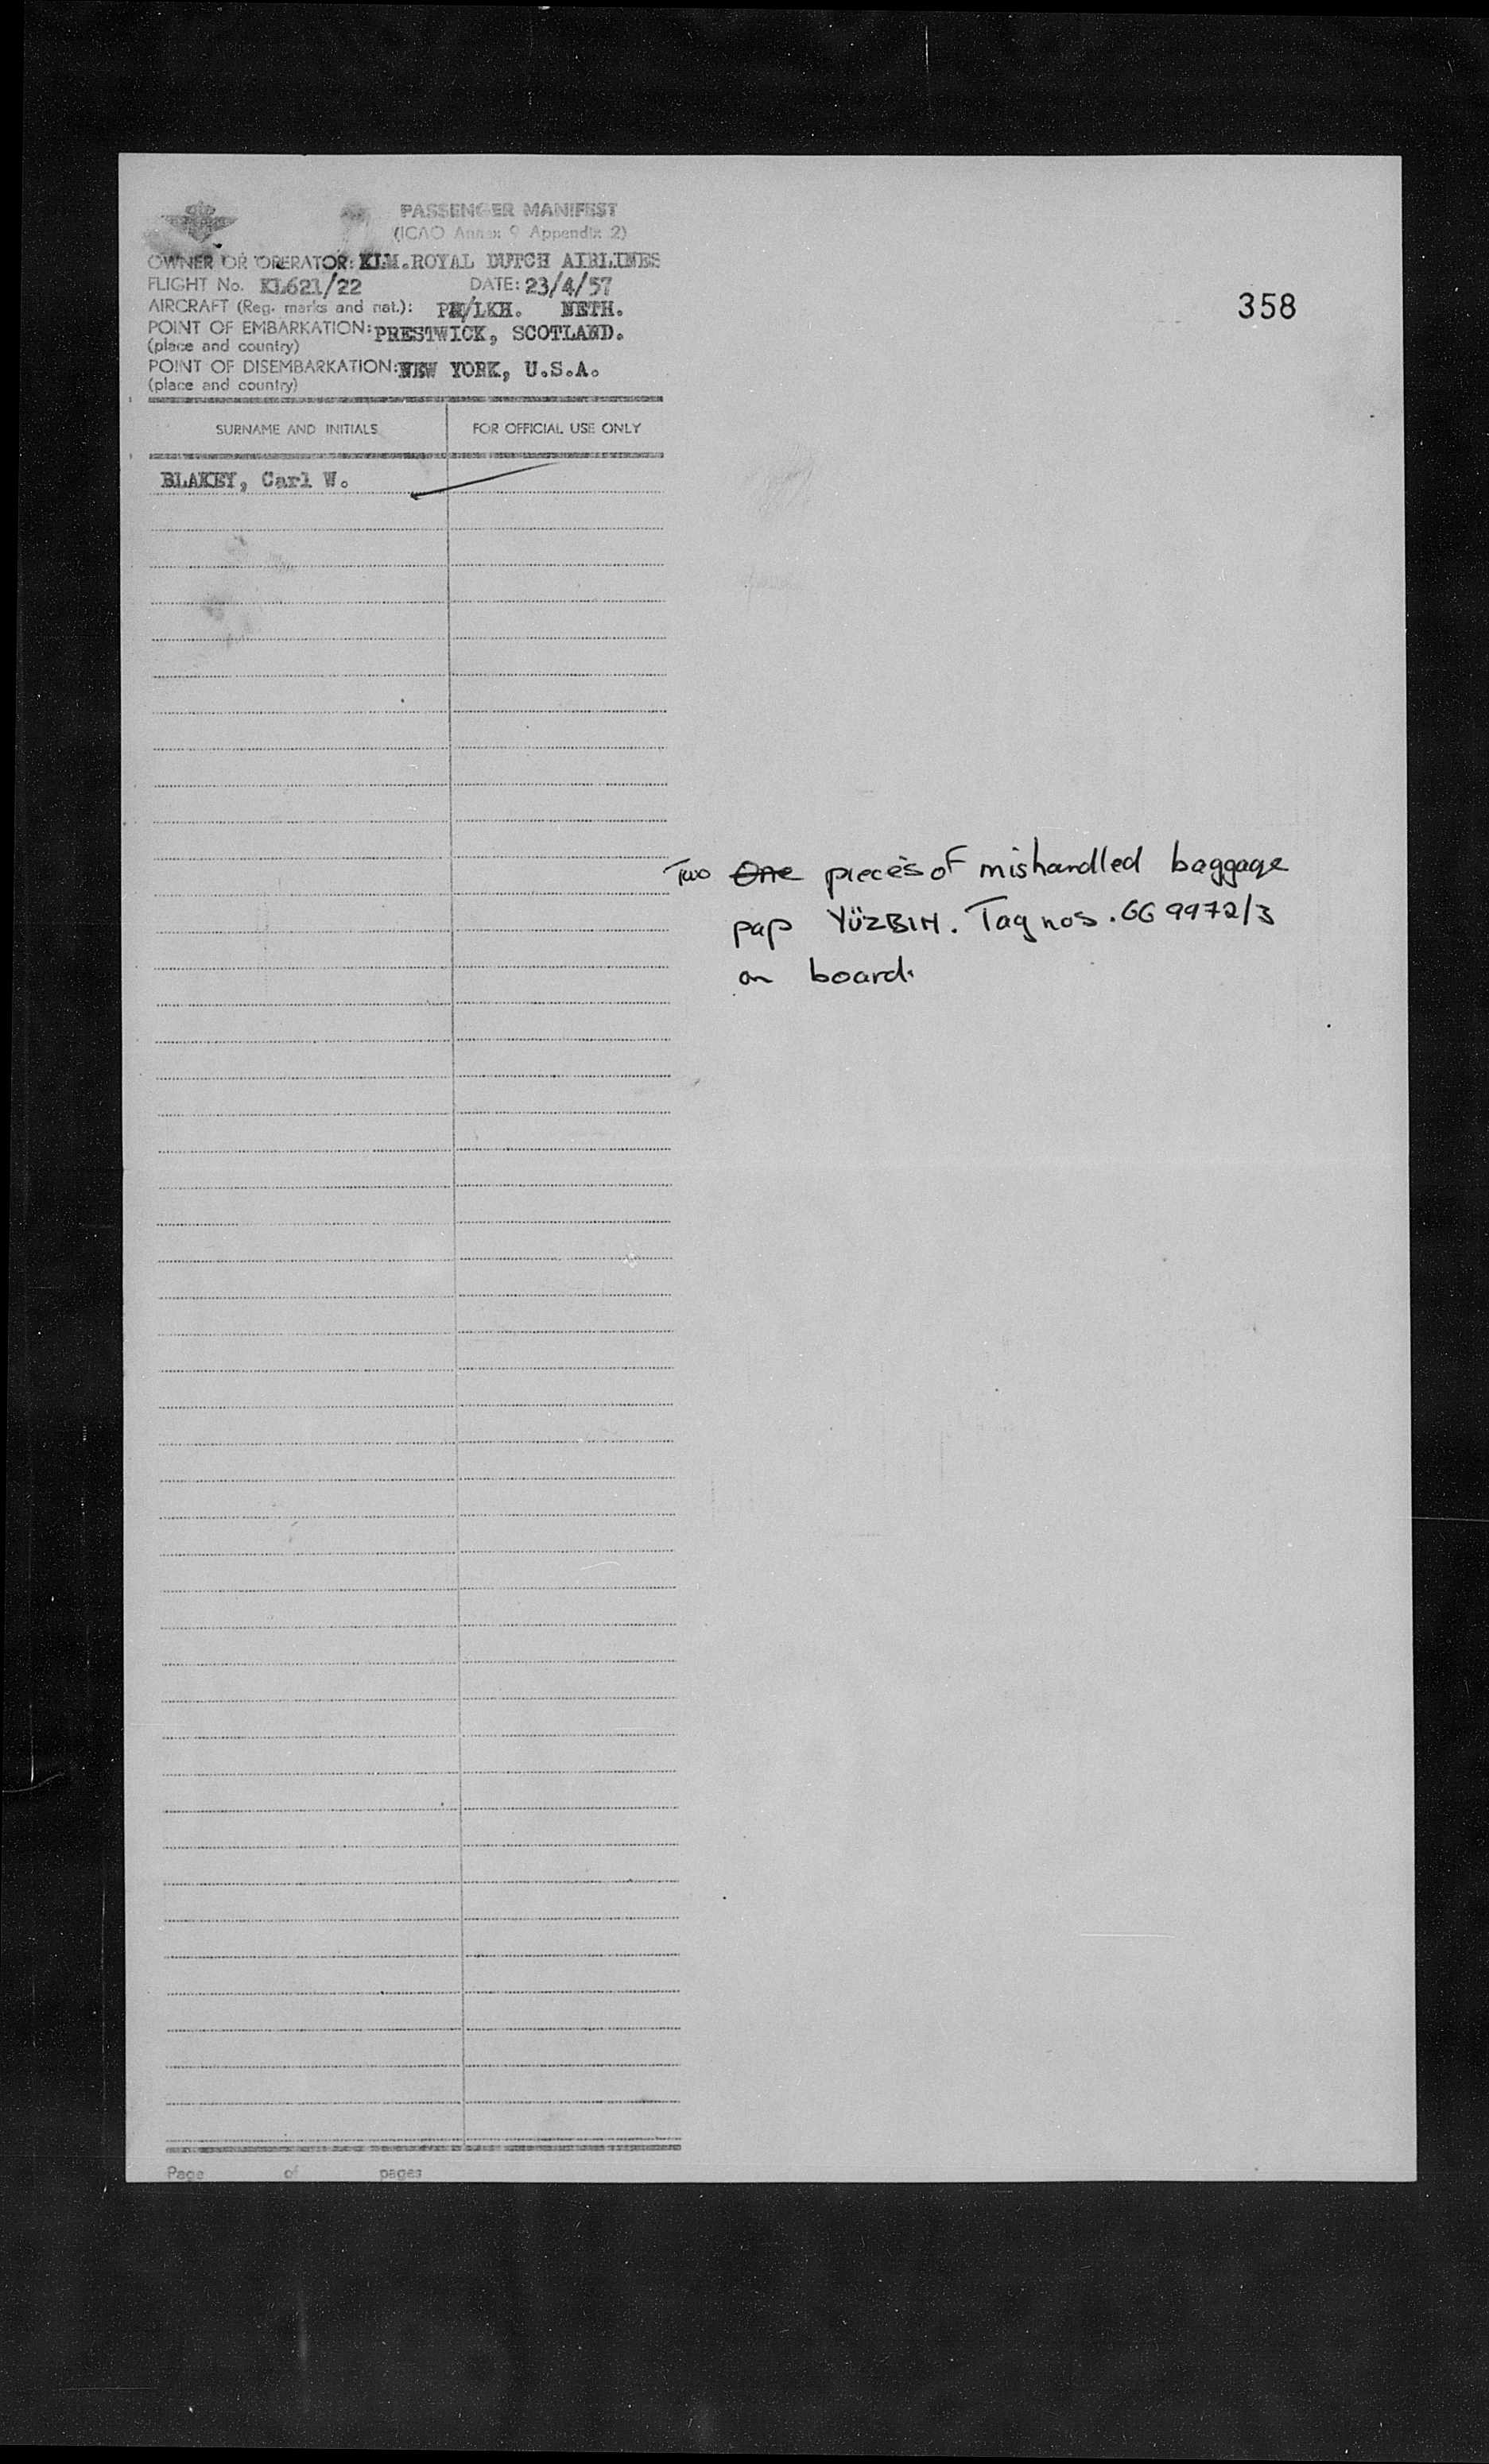 PASSENGER MANIFEST
(ICAO Annex 9 Appendix 2)
OWNER OR OPERATOR: KLM.ROYAL DUTCH AIRLINES
FLIGHT No. KL621/22 DATE: 23/4/57
AIRCRAFT (Reg. marks and nat.): PH/LKH. NETH.
POINT OF EMBARKATION: PRESTWICK, SCOTLAND.
(place and country)
POINT OF DISEMBARKATION: NEW YORK, U.S.A.
(place and country)
358
SURNAME AND INITIALS FOR OFFICIAL USE ONLY
BLAKEY, Carl W.
Two One pieces of mishandled baggage
pap YÜZBIH. Tag nos. GG 9972/3
on board.
Page of pages